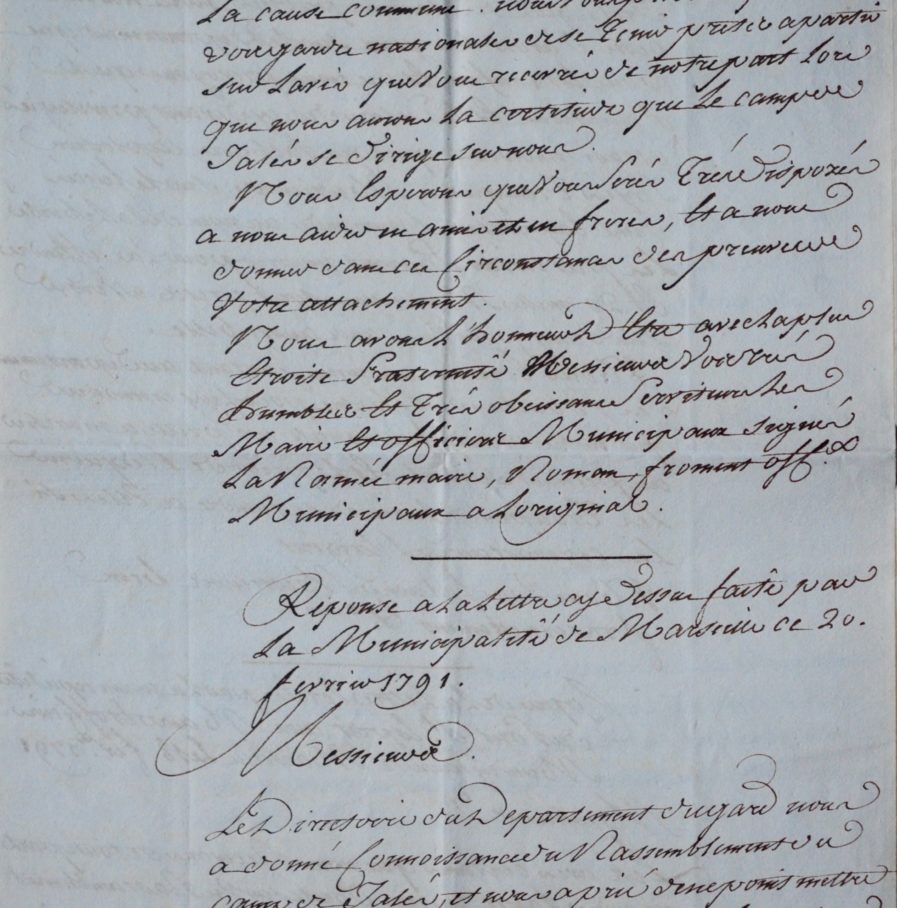 La cause commune. nous
vos gardes nationales de se tenir pretes a partir
sur Lavis que Vous recevrés de notre part Lors
que nous aurons La certitude que Le camp de
Jalés se dirige sur nous.
Nous Esperons que Vous Serés Trés disposés
a nous aider en amis et en freres, Et a nous
donner dans ces Circonstances des preuves de
Votre attachement.
Nous avons L'honneur d'Etre avec La plus
Etroite fraternité Messieurs Vos trés
humbles Et Trés obeissans Serviteurs Les
Maire Et officiers Municipaux signés
La Ramée maire, Roman, froment off.rs
Municipaux a L'original.
Reponse a La Lettre cy dessus faite par
La Municipalité de Marseille ce 20.
fevrier 1791.
Messieurs.
Le Directoire du Departement du gard nous
a donné Connoissance du Rassemblement du
camp de Jalés, et nous a prié de ne point mettre